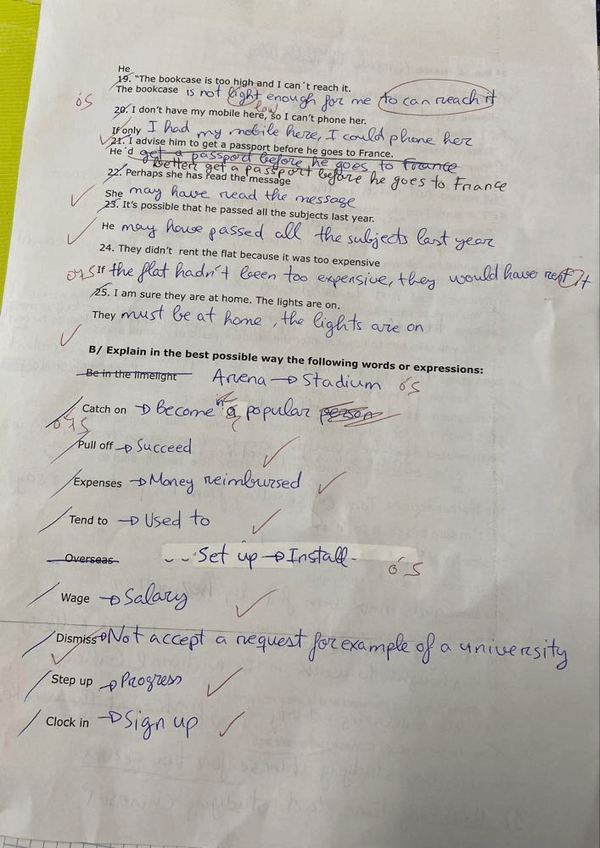 He
19. "The bookcase is too high and I can´t reach it.
The bookcase is not light enough for me to can reach it
low
0´5
20. I don't have my mobile here, so I can't phone her.
If only I had my mobile here, I could phone her
21. I advise him to get a passport before he goes to France.
He´d get a passport before he goes to France
better get a passport before he goes to France
22. Perhaps she has read the message
She may have read the message
23. It's possible that he passed all the subjects last year.
He may have passed all the subjects last year
24. They didn't rent the flat because it was too expensive
0´75 If the flat hadn't been too expensive, they would have rent it
25. I am sure they are at home. The lights are on.
They must be at home, the lights are on
B/ Explain in the best possible way the following words or expressions:
Be in the limelight Arena → Stadium 0´5
Catch on → Become a popular person
0´75
Pull off → Succeed
Expenses → Money reimbursed
Tend to → Used to
Overseas Set up → Install 0´5
Wage → Salary
Dismiss → Not accept a request for example of a university
Step up → Progress
Clock in → Sign up